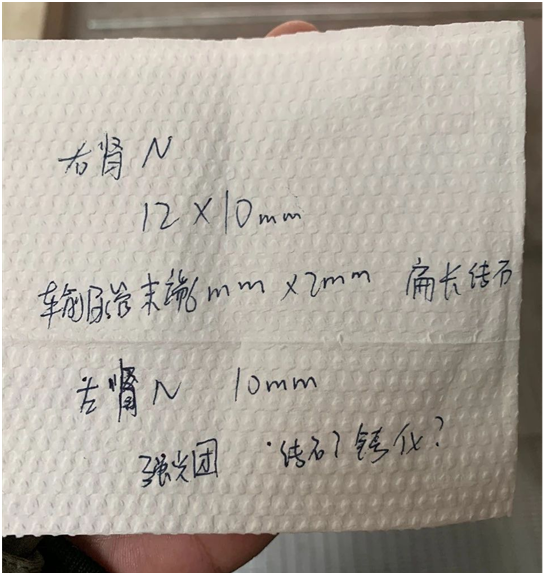 右肾 N
12×10mm
输尿管末端6mm×2mm 扁长结石
左肾 N 10mm
强光团 结石?钙化?